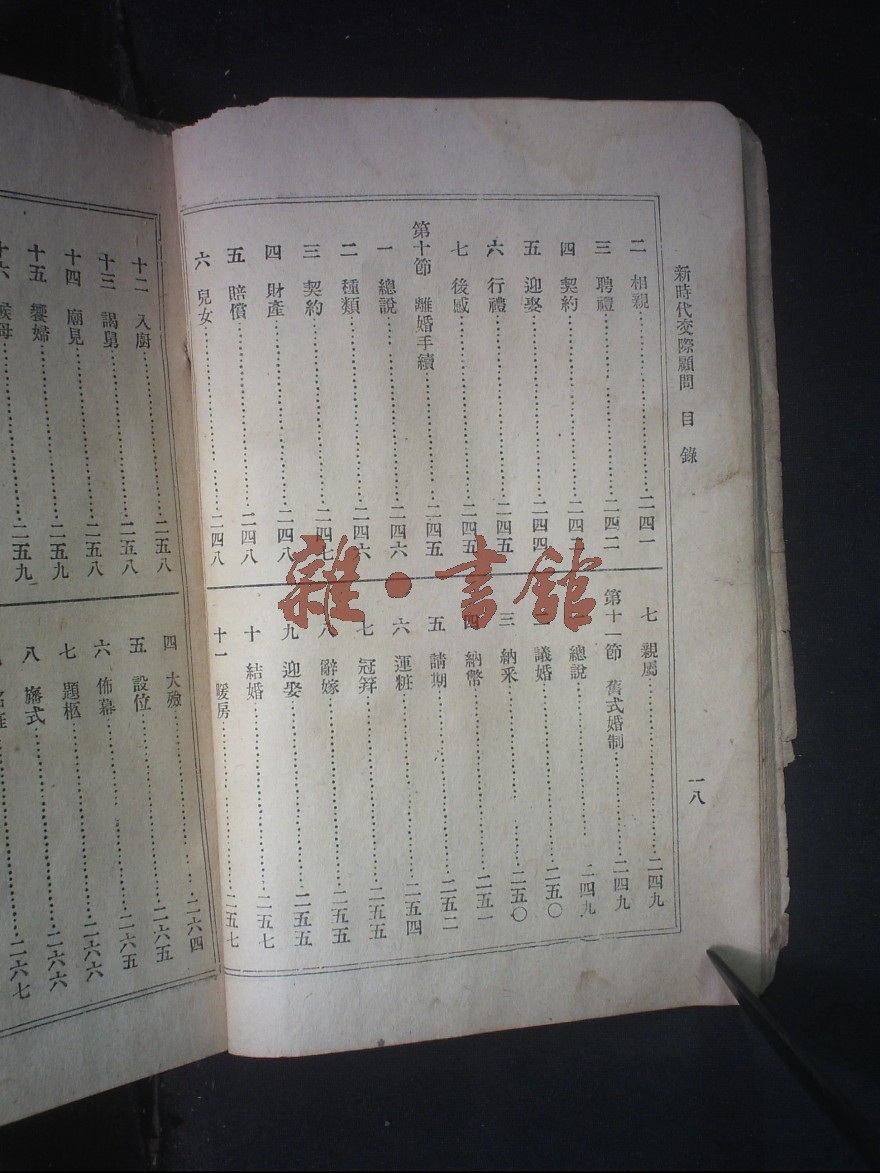 新時代交際顧問 目錄
一八
二 相親……二四一
三 聘禮……二四二
四 契約……二四二
五 迎娶……二四四
六 行禮……二四五
七 後感……二四五
第十節 離婚手續……二四五
一 總說……二四六
二 種類……二四六
三 契約……二四七
四 財產……二四八
五 賠償……二四八
六 兒女……二四八
七 親屬……二四九
第十一節 舊式婚制……二四九
總說……二四九
議婚……二五〇
三 納采……二五〇
四 納幣……二五一
五 請期……二五二
六 運粧……二五四
七 冠笄……二五五
八 辭嫁……二五五
九 迎娶……二五五
十 結婚……二五七
十一 暖房……二五七
十二 入廚……二五八
十三 謁舅……二五八
十四 廟見……二五八
十五 饗婦……二五九
十六……二五九
四 大殮……二六四
五 設位……二六五
六 佈幕……二六五
七 題柩……二六六
八 式……二六六
二六七
雜·書館